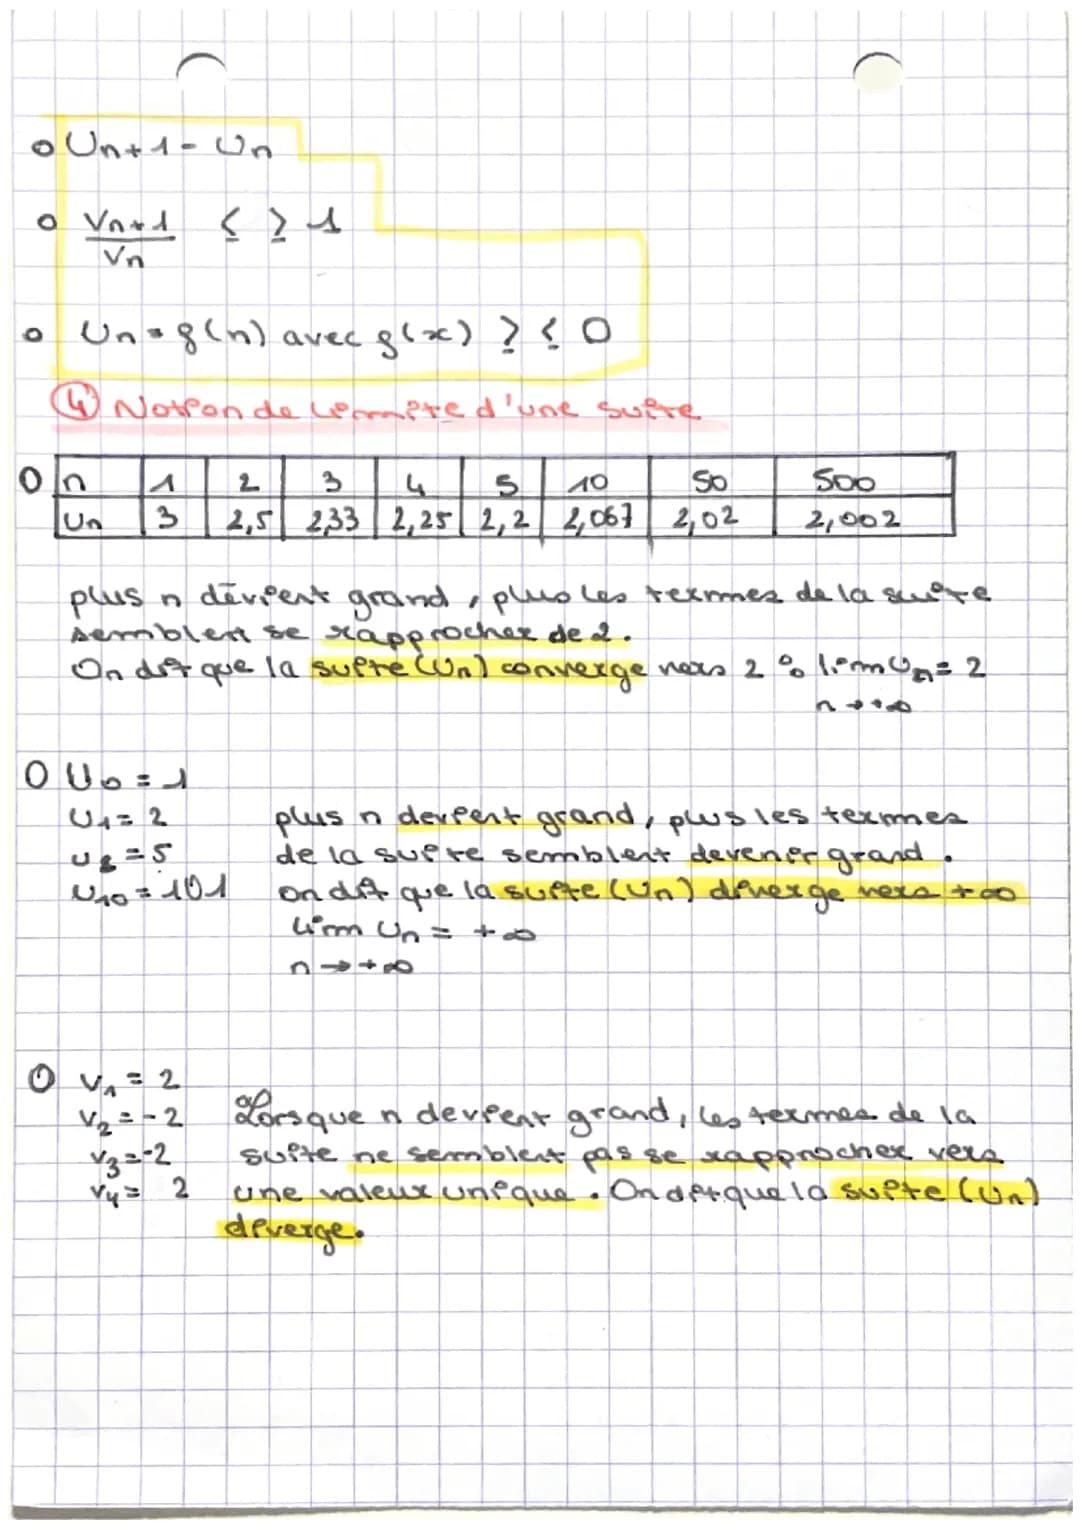 o Un+1 - Un
o Vn+1 / Vn ≤ ≥ 1
o Un = f(n) avec f(x) ≥ ≤ 0
④ Notion de limite d'une suite
O n 1 2 3 4 5 10 50 500
Un 3 2,5 2,33 2,25 2,2 2,067 2,02 2,002
plus n devient grand, plus les termes de la suite
semblent se rapprocher de 2.
On dit que la suite (Un) converge vers 2 : lim Un = 2
n → +∞
O U0 = 1
U1 = 2 plus n devient grand, plus les termes
U2 = 5 de la suite semblent devenir grand.
U10 = 101 on dit que la suite (Un) diverge vers +∞
lim Un = +∞
n → +∞
O V1 = 2
V2 = -2 Lorsque n devient grand, les termes de la
V3 = -2 suite ne semblent pas se rapprocher vers
V4 = 2 une valeur unique. On dit que la suite (Un)
diverge.